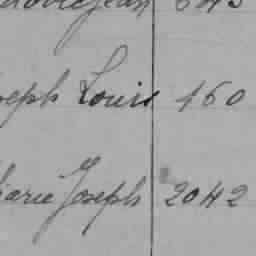 Jean
Joseph Louis 160
Marie Joseph 2042